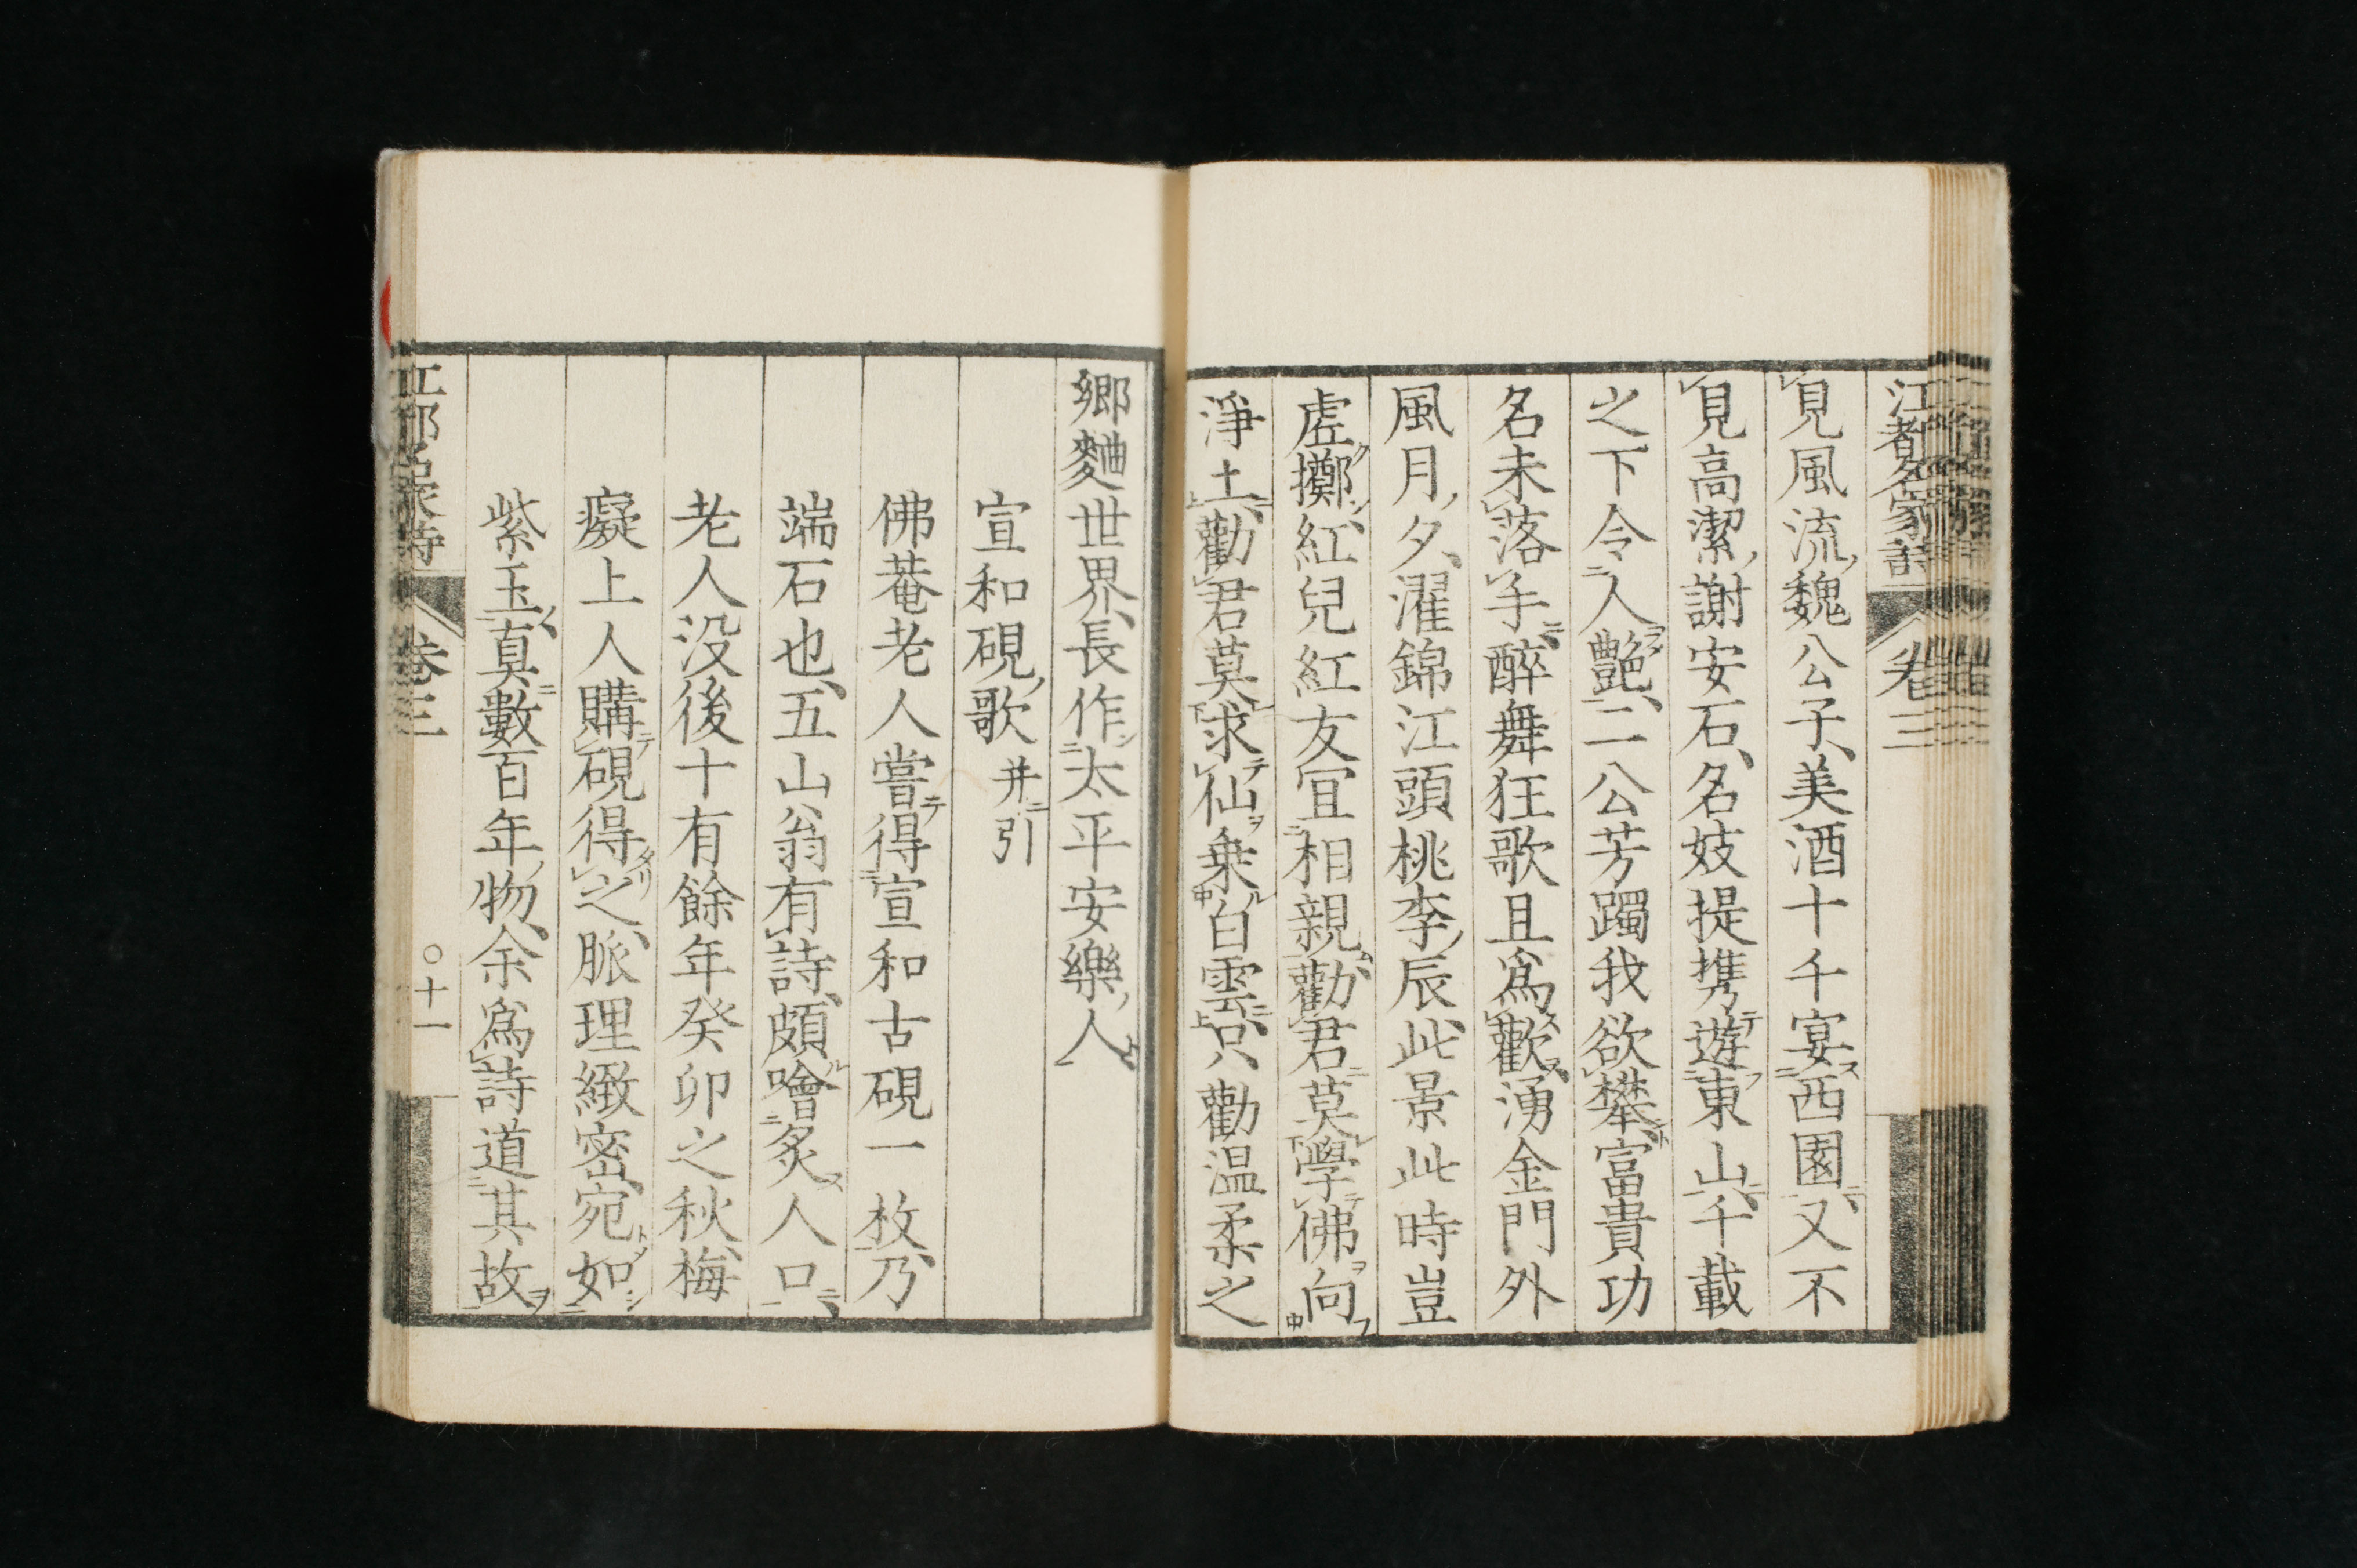 江都名家詩 卷三
見風流魏公子美酒十千宴西園又不
見高潔謝安石名妓提携遊東山千載
之下令人艷二公芳躅我欲攀富貴功
名未落手醉舞狂歌且爲歡湧金門外
風月夕濯錦江頭桃李辰此景此時豈
虗擲紅兒紅友冝相親勸君莫學佛向
淨土勸君莫求仙乗白雲只勸温柔之
鄉麯世界長作太平安樂人
宣和硯歌 并引
佛菴老人嘗得宣和古硯一枚乃
端石也五山翁有詩頗噲炙人口
老人没後十有餘年癸卯之秋梅
癡上人購硯得之脈理緻密宛如
紫玉真數百年物余爲詩道其故
江都名家詩 卷三 〇十一